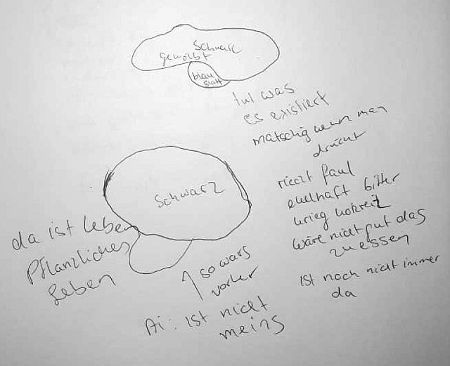 Schwarz
gewölbt
blau
glatt
tut was
es existiert
matschig wenn man
drückt
riecht faul
ekelhaft bitter
wäre nicht gut das
zu essen
ist noch nicht immer
da
Schwarz
da ist leben
Pflanzliches
Leben
so wars
vorher
Ai: ist nicht
meins